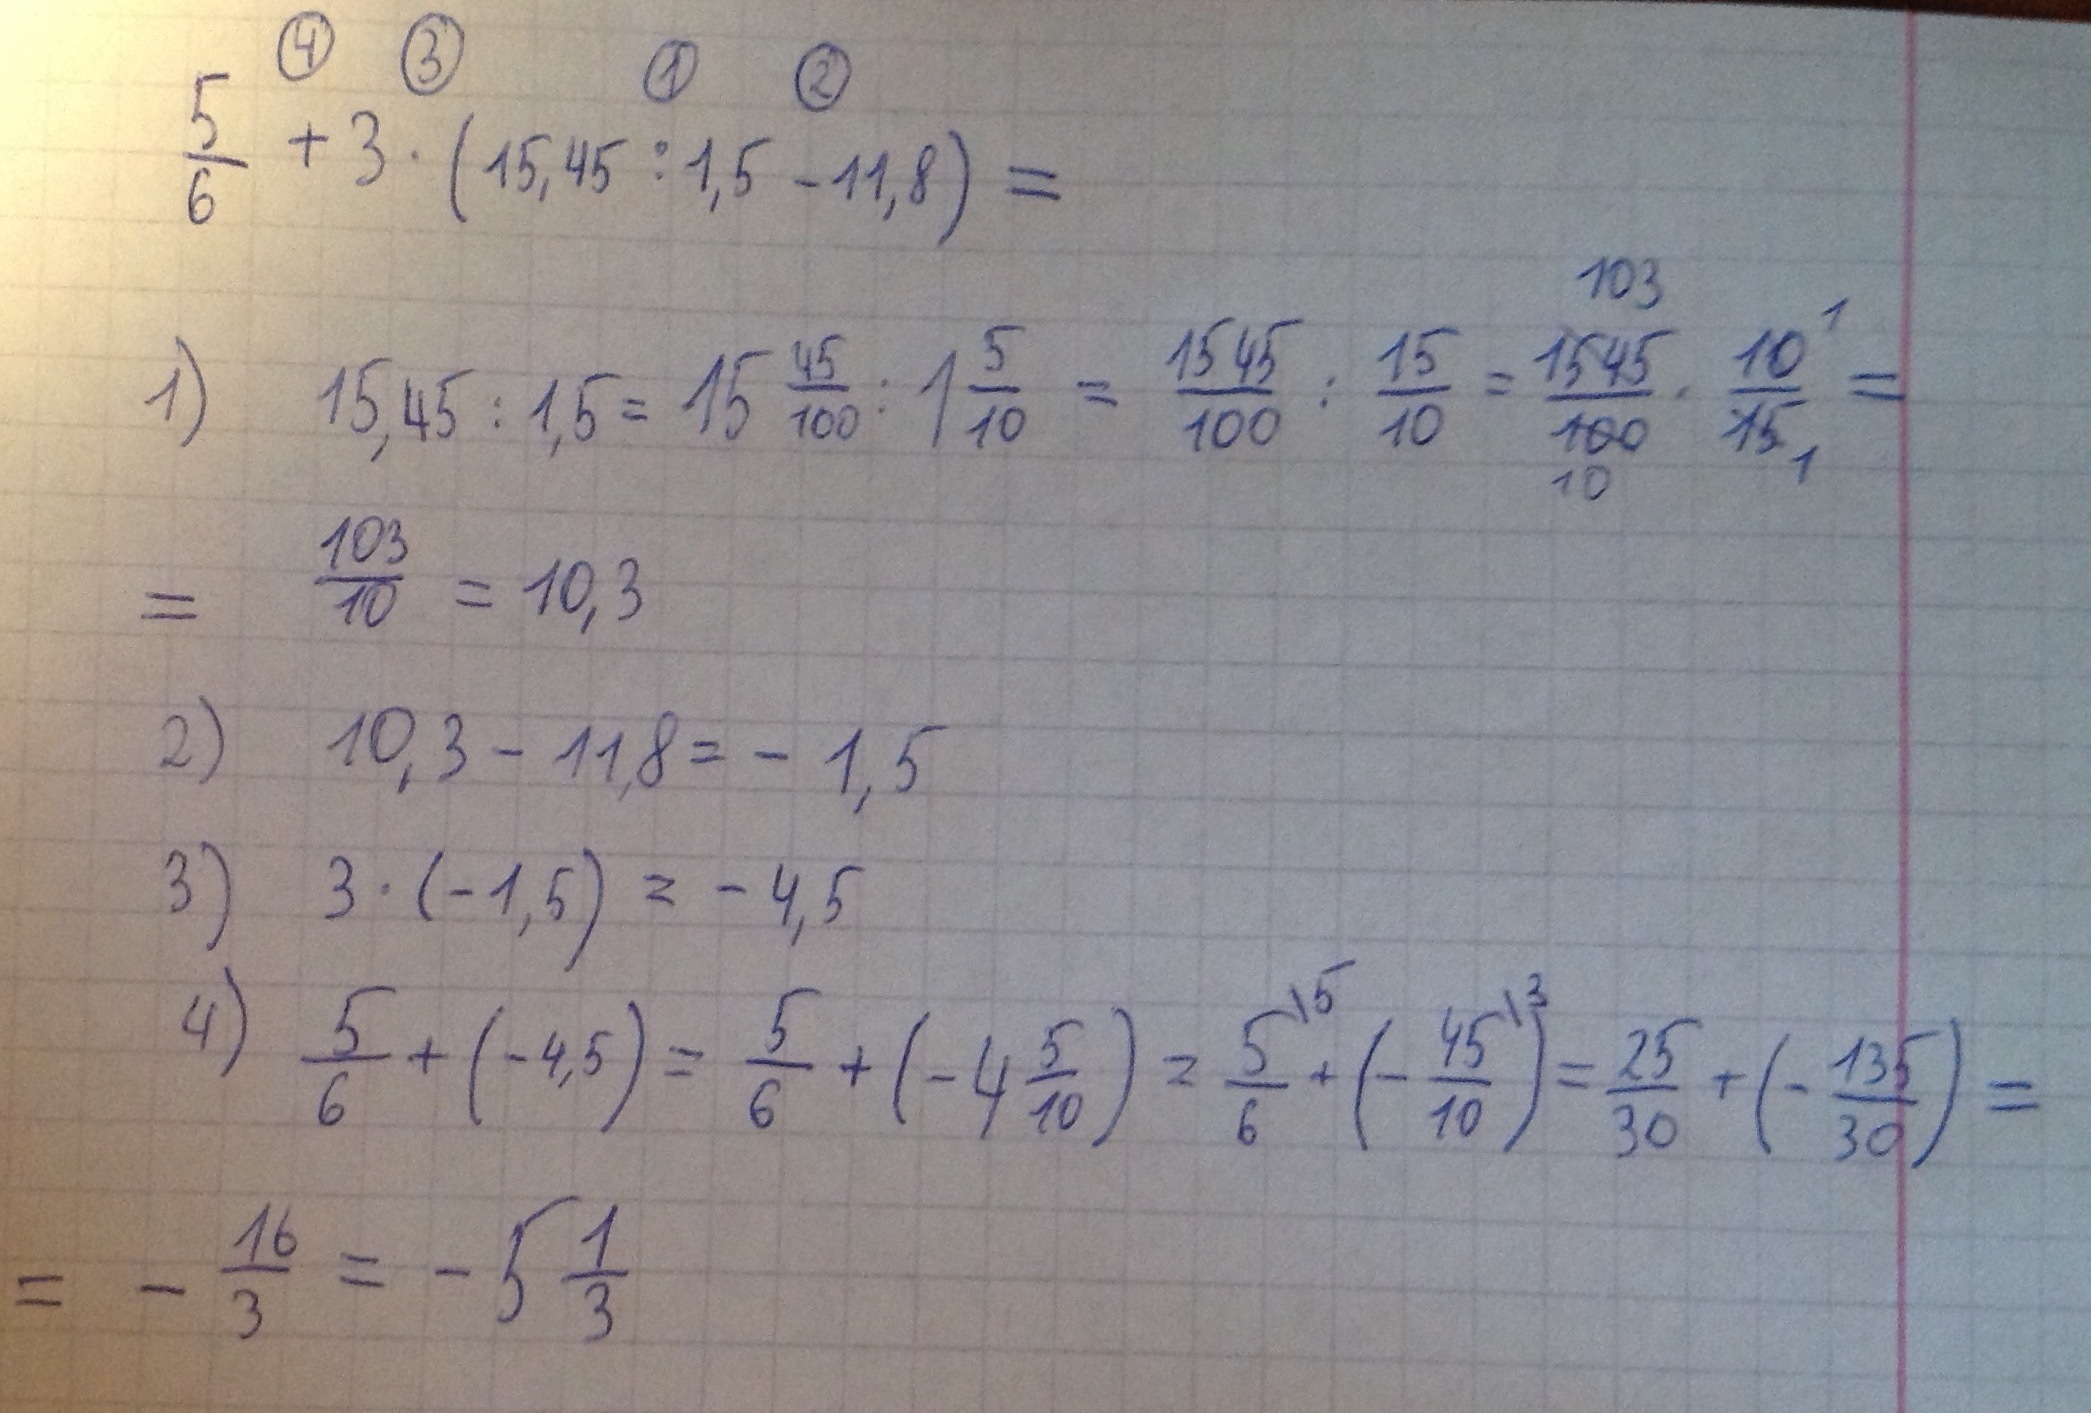 ④ ③ ① ②
5/6 + 3 · (15,45 : 1,5 - 11,8) =
1) 15,45 : 1,5 = 15 45/100 : 1 5/10 = 1545/100 : 15/10 = 103 1545/100 10 · 10 1/15 1 =
= 103/10 = 10,3
2) 10,3 - 11,8 = - 1,5
3) 3 · (-1,5) = - 4,5
4) 5/6 + (-4,5) = 5/6 + (-4 5/10) = 5\5/6 + (- 45\3/10) = 25/30 + (- 135/30) =
= - 16/3 = - 5 1/3